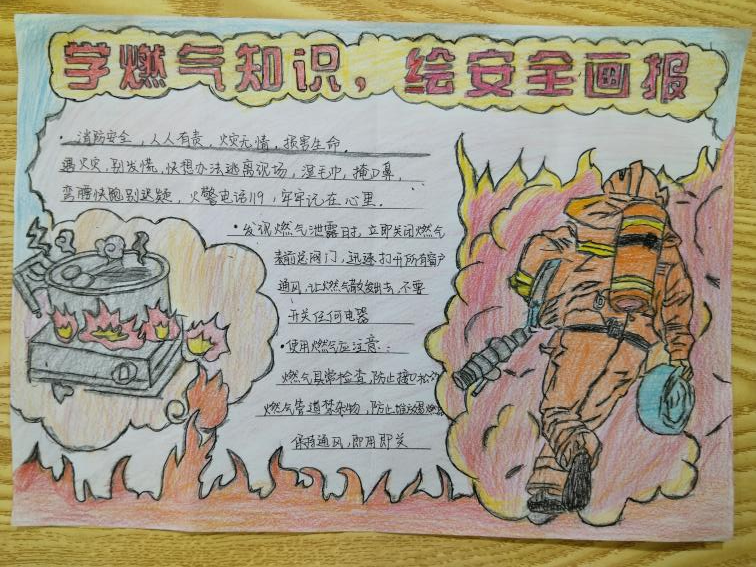 学燃气知识，绘安全画报
·消防安全，人人有责，火灾无情，损害生命．
遇火灾，别发慌，快想办法逃离现场，湿毛巾，掩口鼻，
弯腰快跑别迟疑，火警电话119，牢牢记在心里．
·发现燃气泄露时，立即关闭燃气
表前总阀门，迅速打开所有窗户
通风，让燃气散发出去，不要
开关任何电器
·使用燃气应注意：
燃气具常检查，防止接口松
燃气管道禁杂物，防止
保持通风，即用即关